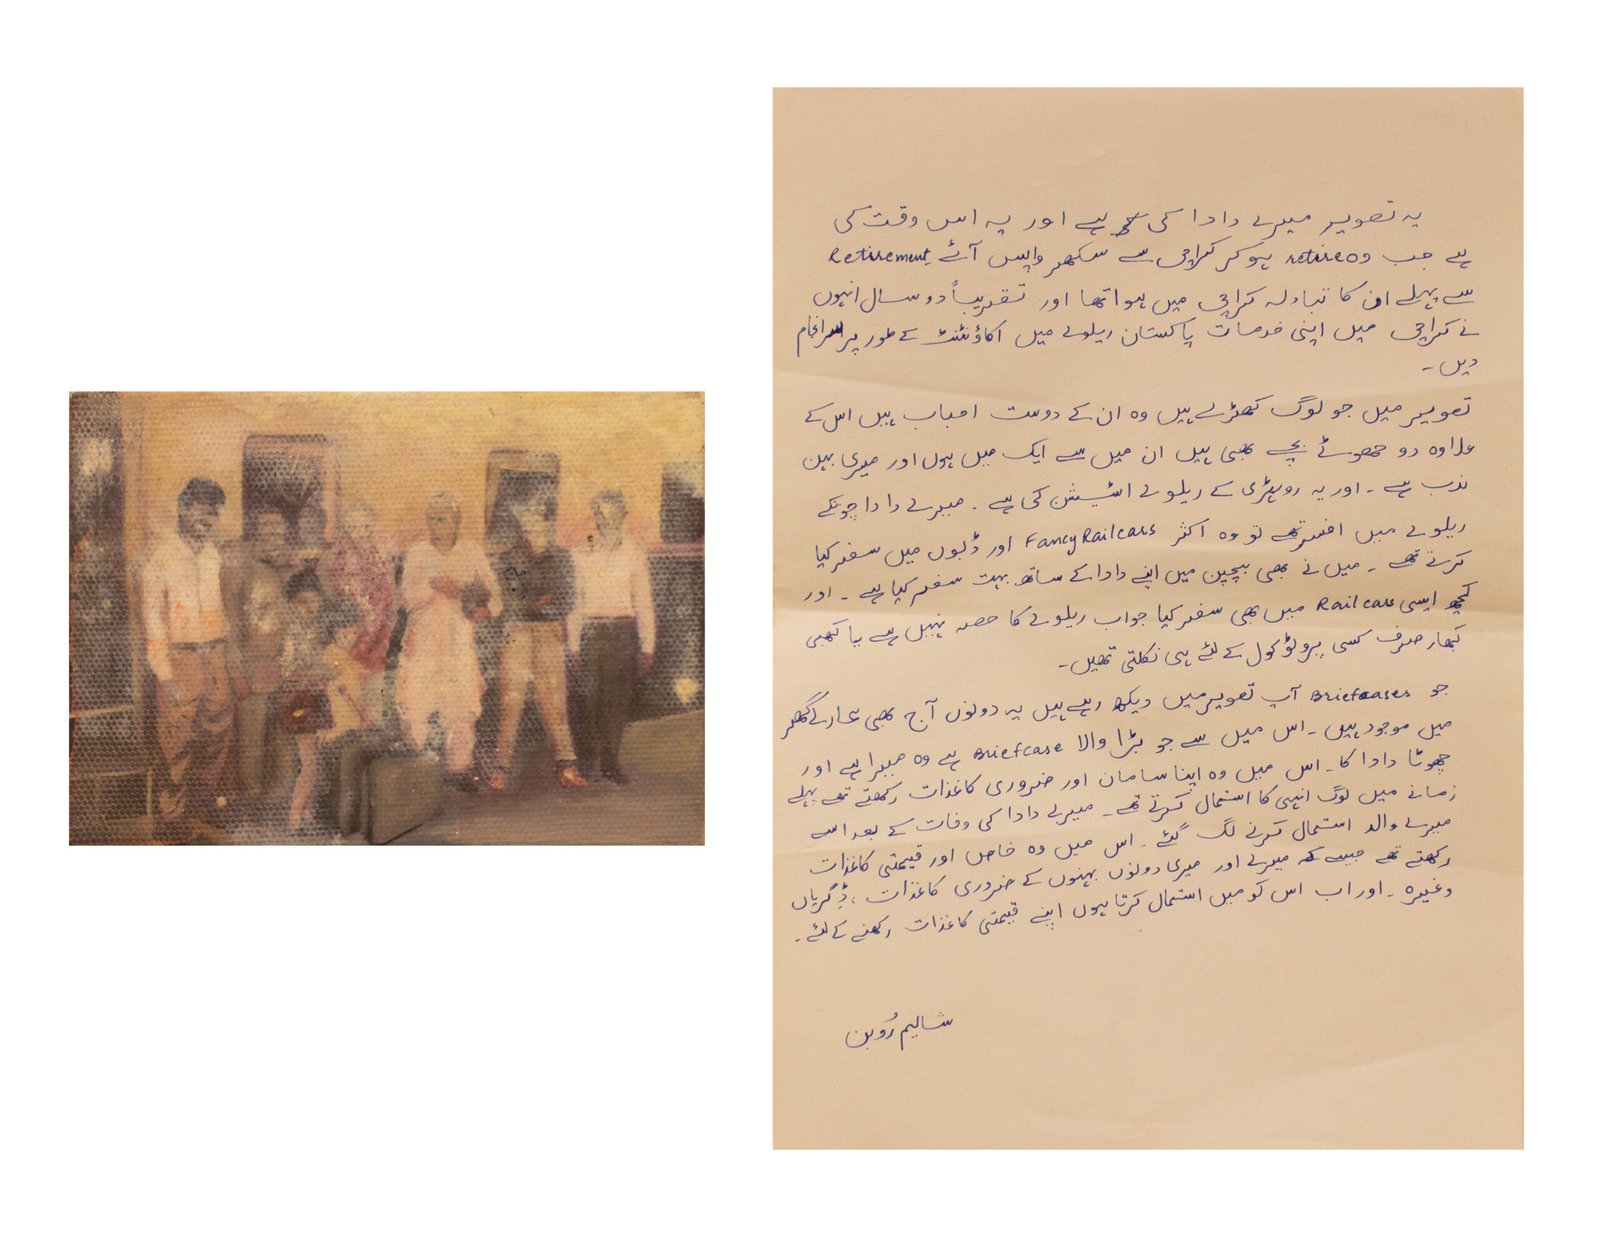 یہ تصویر میرے دادا کی ہے اور یہ اس وقت کی
ہے جب وہ retire ہو کر کراچی سے سکھر واپس آئے Retirement
سے پہلے ان کا تبادلہ کراچی میں ہوا تھا اور تقریباً دو سال انہوں
نے کراچی میں اپنی خدمات پاکستان ریلوے میں اکاؤنٹنٹ کے طور پر سرانجام
دیں۔
تصویر میں جو لوگ کھڑے ہیں وہ ان کے دوست احباب ہیں اس کے
علاوہ دو چھوٹے بچے بھی ہیں ان میں سے ایک میں ہوں اور میری بہن
ہے۔ اور یہ روہڑی کے ریلوے اسٹیشن کی ہے۔ میرے دادا چونکے
ریلوے میں افسر تھے تو وہ اکثر Fancy Railcars اور ڈبوں میں سفر کیا
کرتے تھے۔ میں نے بھی بچپن میں اپنے دادا کے ساتھ بہت سفر کیا ہے۔ اور
کچھ ایسی Railcars میں بھی سفر کیا جو اب ریلوے کا حصہ نہیں ہے یا کبھی
کبھار صرف کسی پروٹوکول کے لئے ہی نکلتی تھیں۔
جو Briefcases آپ تصویر میں دیکھ رہے ہیں یہ دونوں آج بھی ہمارے گھر
میں موجود ہیں۔ اس میں سے جو بڑا والا Briefcase ہے وہ میرا ہے اور
چھوٹا دادا کا۔ اس میں وہ اپنا سامان اور ضروری کاغذات رکھتے تھے پہلے
زمانے میں لوگ انہی کا استمال کرتے تھے۔ میرے دادا کی وفات کے بعد اسے
میرے والد استمال کرنے لگ گئے۔ اس میں وہ خاص اور قیمتی کاغذات
رکھتے تھے جیسے کہ میرے اور میری دونوں بہنوں کے ضروری کاغذات، ڈگریاں
وغیرہ۔ اور اب اس کو میں استمال کرتا ہوں اپنے قیمتی کاغذات رکھنے کے لئے۔
شالیم رُوبن